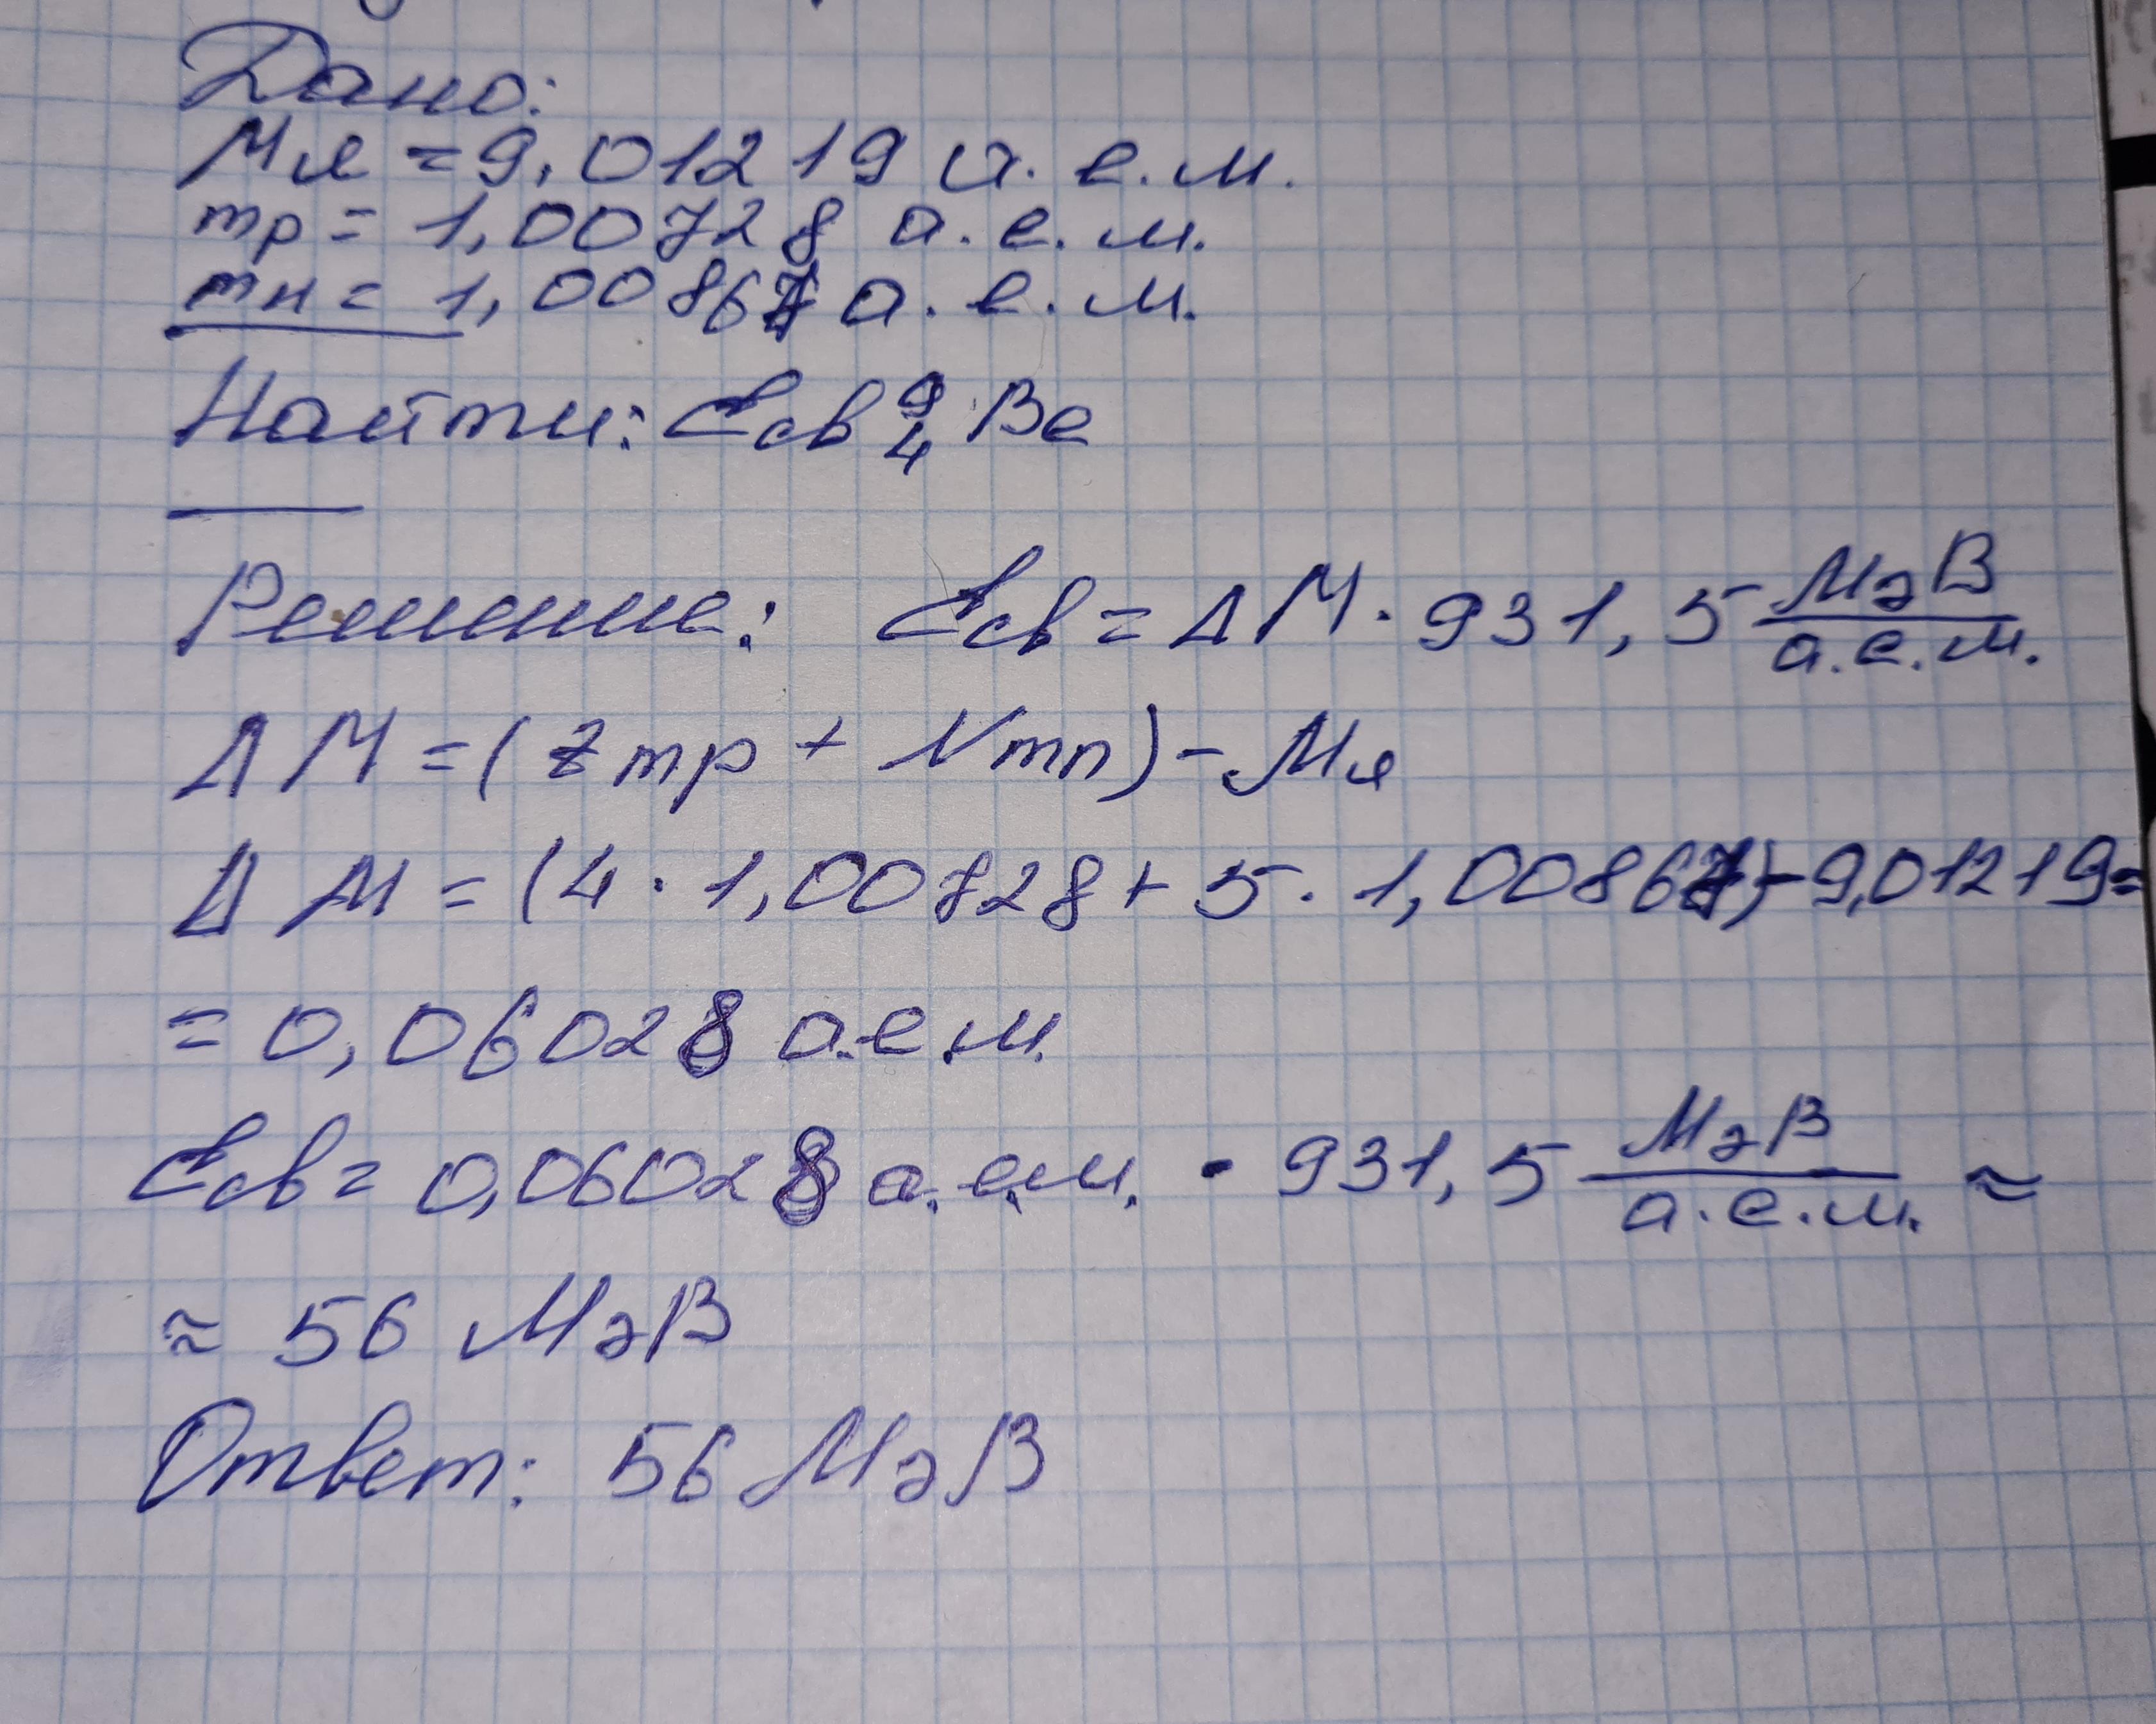 Дано:
Mя = 9,01219 а.е.м.
mp = 1,00728 а.е.м.
mн = 1,00867 а.е.м.
Найти: Eсв ⁹₄Be
Решение: Eсв = ΔM · 931,5 МэВ/а.е.м.
ΔM = (Zmp + Nmn) - Mя
ΔM = (4 · 1,00728 + 5 · 1,00867) - 9,01219 =
= 0,06028 а.е.м.
Eсв = 0,06028 а.е.м. · 931,5 МэВ/а.е.м. ≈
≈ 56 МэВ
Ответ: 56 МэВ